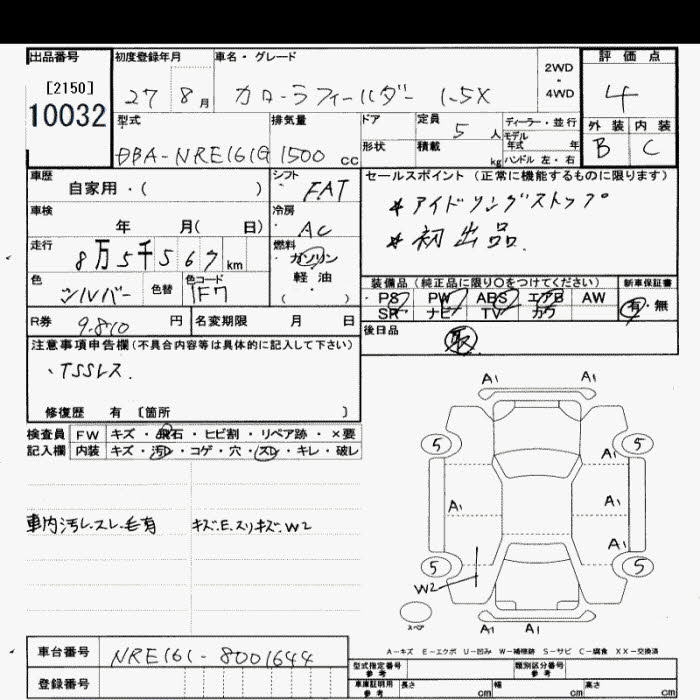 出品番号 初度登録年月 車名・グレード 2WD・4WD 評価点
[2150]
10032 27 8月 カローラフィールダー 1.5X 4
型式 排気量 ドア 定員 5人 ディーラー・並行 外装 内装
DBA-NRE161G 1500cc 形状 積載 kg モデル年式 年 B C
ハンドル 左・右
車歴 自家用・( ) シフト FAT セールスポイント (正常に機能するものに限ります)
車検 年 月( 日) 冷房 AC *アイドリングストップ
走行 8万5千567km 燃料 ガソリン *初出品
軽・油
( )
色 シルバー 色替 色コード 1F7 装備品 (純正品に限り○をつけてください) 新車保証書
・PS PW ABS エアB AW 有・無
SR ナビ TV カワ
R券 9.870円 名変期限 月 日 後日品 取
注意事項申告欄(不具合内容等は具体的に記入して下さい)
・TSSレス.
修復歴 有 〔箇所 〕
検査員 FW キズ・飛石・ヒビ割・リペア跡・×要
記入欄 内装 キズ・汚れ・コゲ・穴・スレ・キレ・破レ
車内汚レ.スレ.毛有 キズ.E.スリキズ.W2
A1 A1
5 5
A1 A1
A1
5 5
W2
スペア A1 A1
A-キズ E-エクボ U-凹み W-補修跡 S-サビ C-腐食 XX-交換済
車台番号 NRE161-8001644 型式指定番号 参考 類別区分番号 参考
登録番号 車庫証明用 参考 長さ cm 幅 cm 高さ cm